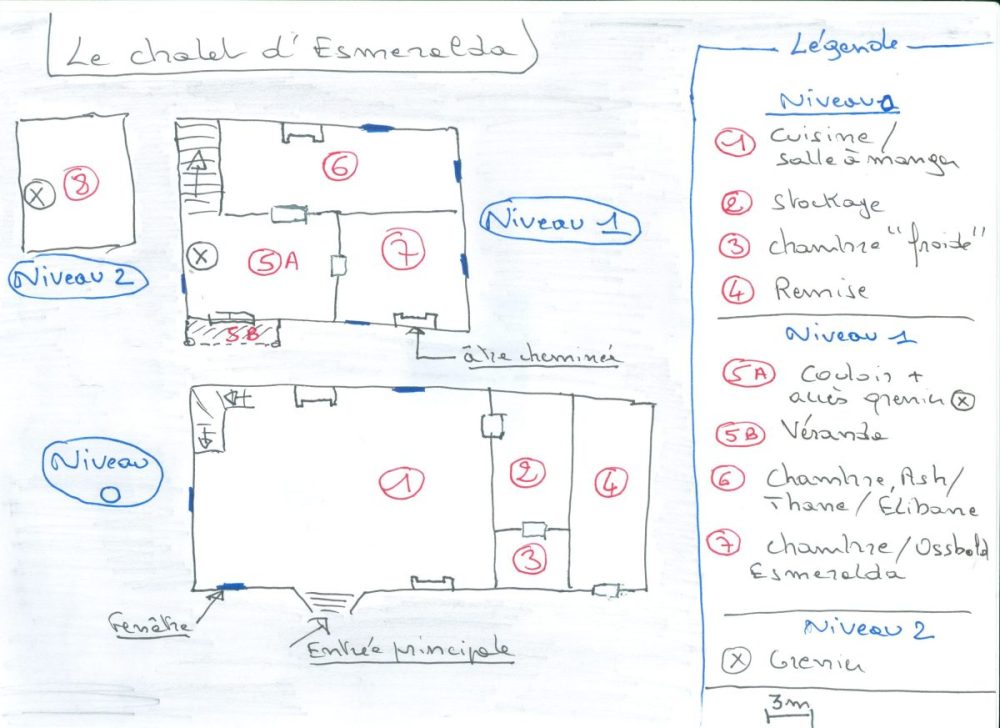 Le chalet d'Esmeralda
8
X
Niveau 2
6
X
5A
7
5B
Niveau 1
âtre cheminée
Niveau
0
1
2
3
4
Fenêtre
Entrée principale
Légende
Niveau 0
1 Cuisine /
salle à manger
2 Stockage
3 chambre "froide"
4 Remise
Niveau 1
5A Couloir +
accès grenier X
5B Véranda
6 Chambre, Ash /
Thane / Élibane
7 chambre / Ossbold
Esmeralda
Niveau 2
X Grenier
3m